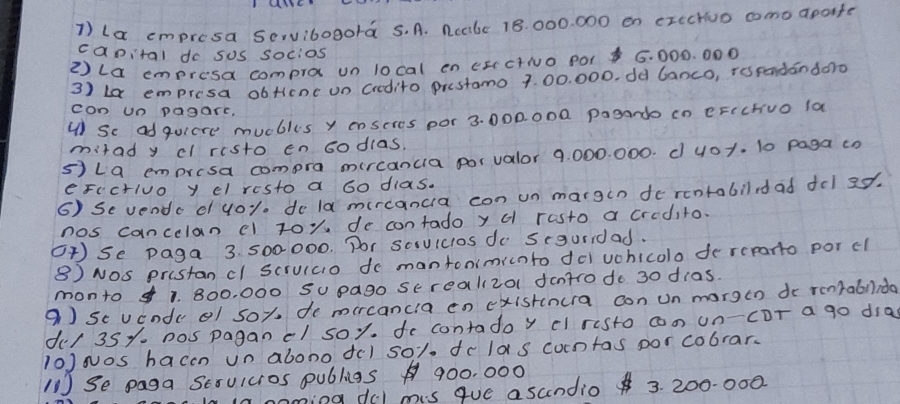 Taller
1) La empresa Servibogotá S.A. Recibe 18.000.000 en efectivo como aporte
capital de sus socios
2) La empresa compra un local en efectivo por $ 6.000.000
3) La empresa obtiene un credito prestamo 7.00.000. del banco, respondandolo
con un pagare.
4) Se adquiere muebles y enseres por 3.000.000 pagando en efectivo la
mitad y el resto en 60 dias.
5) La empresa compra mercancia por valor 9.000.000. el 40%. lo paga en
efectivo y el resto a 60 dias.
6) Se vende el 40%. de la mercancia con un margen de rentabilidad del 35%.
nos cancelan el 70%. de contado y el resto a credito.
07) Se paga 3.500.000. Por servicios de Seguridad.
8) Nos prestan el servicio de mantenimiento del vehicolo de reparto por el
monto $ 1.800.000 su pago se realiza dentro de 30 dias.
9) Se vende el 50%. de mercancia en existencia con un margen de rentabilida
del 35%. nos pagan el 50%. de contado y el resto con un CDT a 90 dias
10) Nos hacen un abono del 50%. de las cuentas por cobrar.
11) Se paga Servicios publicos $ 900.000
la nomina del mes que ascendio $ 3.200.000